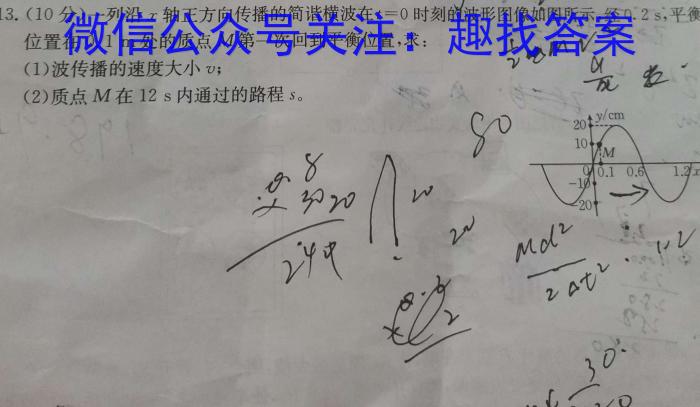 13.(10分)一列沿x轴正方向传播的简谐横波在t=0时刻的波形图像如图所示,经0.2 s,平衡
位置在 处的质点M第一次回到平衡位置,求:
微信公众号关注:趣找答案
(1)波传播的速度大小v;
(2)质点M在12 s内通过的路程s。
80
y/cm
20
10
M
0 0.1 0.6 1.2 x
-10
-20
8
30 20
244
20
20
Md²
2Δt²
1.2
2
30